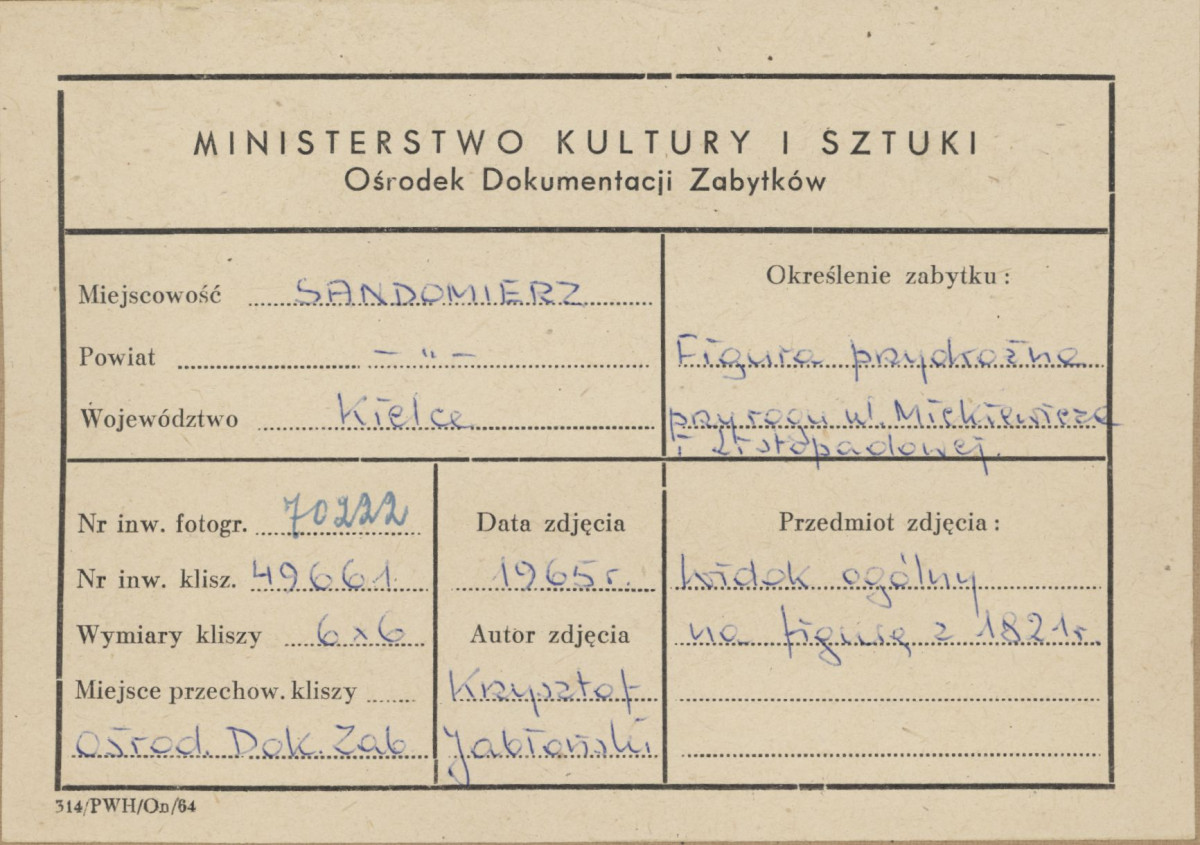 MINISTERSTWO KULTURY I SZTUKI
Ośrodek Dokumentacji Zabytków
Miejscowość SANDOMIERZ
Powiat — " —
Województwo Kielce
Określenie zabytku:
Figura przydrożna
przy rogu ul. Mickiewicza
i Listopadowej.
Nr inw. fotogr. 70222
Nr inw. klisz. 49661
Wymiary kliszy 6x6
Miejsce przechow. kliszy
Ośrod. Dok. Zab
Data zdjęcia
1965r.
Autor zdjęcia
Krzysztof
Jabłoński
Przedmiot zdjęcia:
Widok ogólny
na figurę z 1821r.
314/PWH/On/64